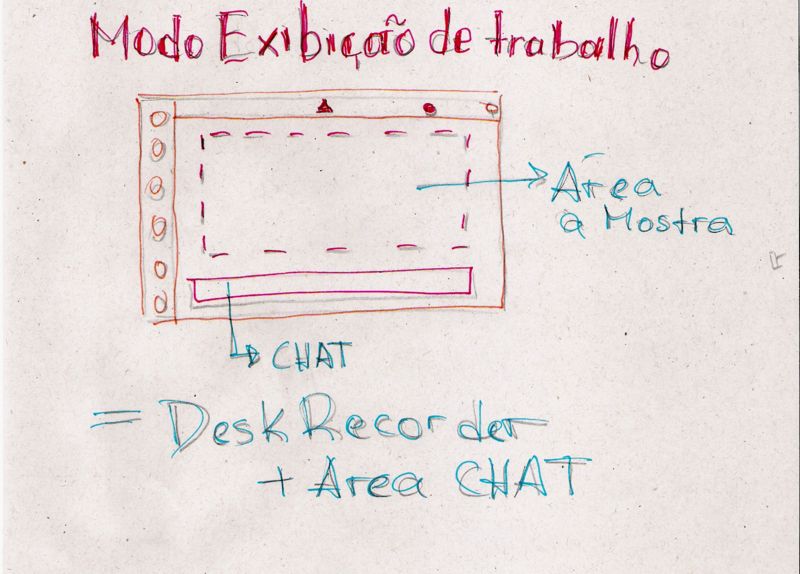 Modo Exibição de trabalho
Área
a Mostra
CHAT
= DeskRecorder
+ Area CHAT